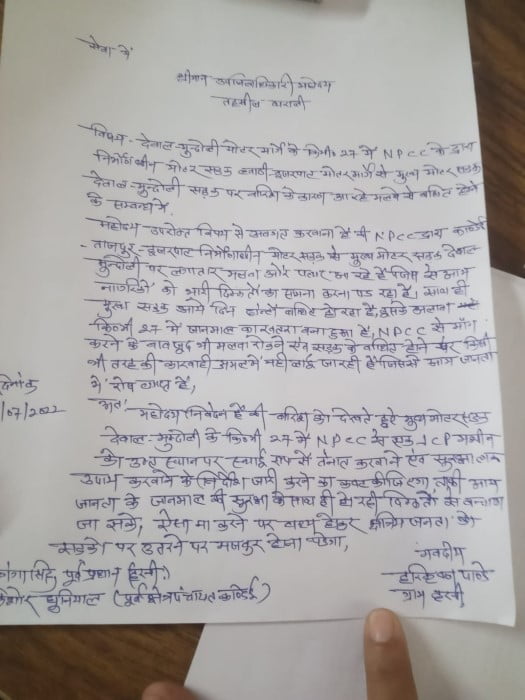 सेवा में
श्रीमान उपजिलाधिकारी महोदय
तहसील थराली
विषय - देवाल-मुन्दोली मोटर मार्ग के कि०मी० 27 में NPCC के द्वारा
निर्माणाधीन मोटर सड़क मोटरमार्ग से मुख्य मोटर सड़क
देवाल-मुन्दोली सड़क पर बारिश के कारण आ रहे मलबे से बाधित होने
के सम्बन्ध में,
महोदय उपरोक्त विषय से अवगत करवाना है की NPCC द्वारा
ताजपुर - निर्माणाधीन मोटर सड़क से मुख्य मोटर सड़क देवाल
मुन्दोली पर लगातार मलवा और पत्थर आ रहे हैं जिससे आम
नागरिकों को भारी दिक्कतों का सामना करना पड़ रहा है, साथ ही
मुख्य सड़क आये दिन बाधित हो रहा है, इसके अलावा
कि०मी० 27 में जानमाल का खतरा बना हुआ है, NPCC से माँग
करने के बावजूद भी मलवा रोकने एवं सड़क के बाधित होने पर किसी
भी तरह की कारवाही अमल में नही लाई जा रही है जिससे आम जनता
में रोष व्याप्त है,
दिनांक
/07/2022
अतः
महोदय निवेदन है की बारिश को देखते हुये मुख्य मोटर सड़क
देवाल-मुन्दोली के कि०मी० 27 में NPCC से एक JCP मशीन
को उक्त स्थान पर स्थाई रूप से तैनात करवाने एवं सुरक्षात्मक
उपाय करवाने के निर्देश जारी करने का कष्ट कीजिएगा ताकी आम
जनता के जानमाल की सुरक्षा के साथ ही हो रही दिक्कतों से बचाया
जा सके, ऐसा ना करने पर बाध्य होकर क्षेत्रिय जनता को
सड़को पर उतरने पर मजबुर होना पड़ेगा,
भवदीय
हरिकृष्ण पाण्डे
ग्राम हरनी
गंगा सिंह पूर्व प्रधान हरनी
(पूर्व क्षेत्र पंचायत)